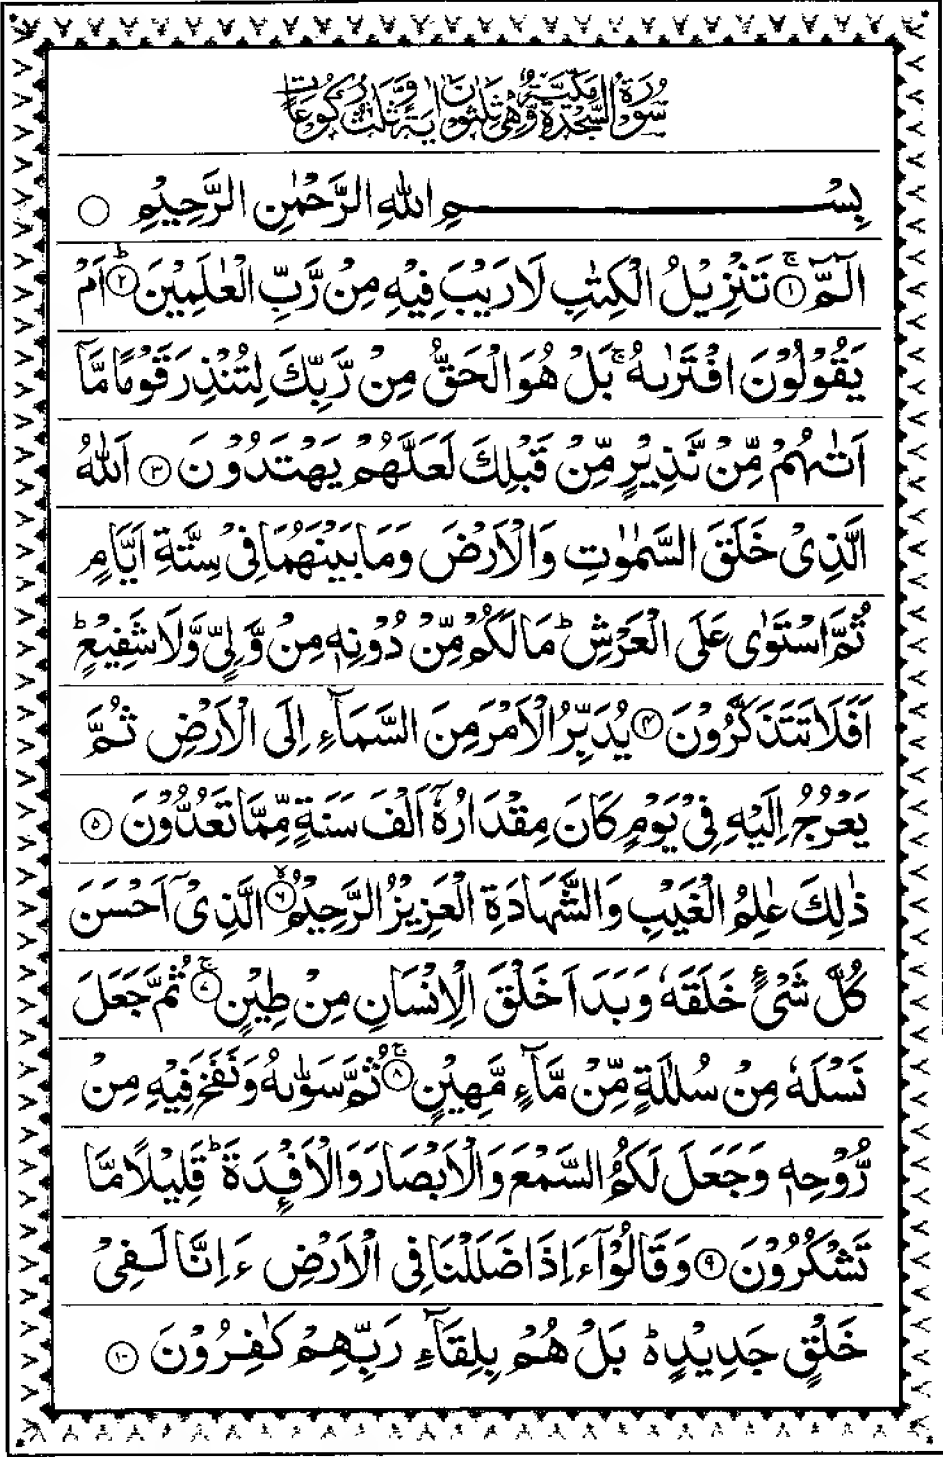 سُوْرَةُ السَّجْدَةِ مَكِّيَّةٌ وَّهِىَ ثَلٰثُوْنَ اٰيَةً وَّثَلٰثُ رُكُوْعَاتٍ
بِسْــــــــــــمِ اللّٰهِ الرَّحْمٰنِ الرَّحِيْمِ ○
الٓمّٓ ۚ﴿۱﴾ تَنْزِيْلُ الْكِتٰبِ لَا رَيْبَ فِيْهِ مِنْ رَّبِّ الْعٰلَمِيْنَ ؕ﴿۲﴾ اَمْ
يَقُوْلُوْنَ افْتَرٰىهُ ۚ بَلْ هُوَ الْحَقُّ مِنْ رَّبِّكَ لِتُنْذِرَ قَوْمًا مَّاۤ
اَتٰىهُمْ مِّنْ نَّذِيْرٍ مِّنْ قَبْلِكَ لَعَلَّهُمْ يَهْتَدُوْنَ ﴿۳﴾ اَللّٰهُ
الَّذِىْ خَلَقَ السَّمٰوٰتِ وَالْاَرْضَ وَمَا بَيْنَهُمَا فِىْ سِتَّةِ اَيَّامٍ
ثُمَّ اسْتَوٰى عَلَى الْعَرْشِ ؕ مَا لَكُمْ مِّنْ دُوْنِهٖ مِنْ وَّلِىٍّ وَّلَا شَفِيْعٍ ؕ
اَفَلَا تَتَذَكَّرُوْنَ ﴿۴﴾ يُدَبِّرُ الْاَمْرَ مِنَ السَّمَآءِ اِلَى الْاَرْضِ ثُمَّ
يَعْرُجُ اِلَيْهِ فِىْ يَوْمٍ كَانَ مِقْدَارُهٗۤ اَلْفَ سَنَةٍ مِّمَّا تَعُدُّوْنَ ﴿۵﴾
ذٰلِكَ عٰلِمُ الْغَيْبِ وَالشَّهَادَةِ الْعَزِيْزُ الرَّحِيْمُ ۙ﴿۶﴾ الَّذِىْۤ اَحْسَنَ
كُلَّ شَىْءٍ خَلَقَهٗ وَبَدَاَ خَلْقَ الْاِنْسَانِ مِنْ طِيْنٍ ۚ﴿۷﴾ ثُمَّ جَعَلَ
نَسْلَهٗ مِنْ سُلٰلَةٍ مِّنْ مَّآءٍ مَّهِيْنٍ ۚ﴿۸﴾ ثُمَّ سَوّٰىهُ وَنَفَخَ فِيْهِ مِنْ
رُّوْحِهٖ وَجَعَلَ لَكُمُ السَّمْعَ وَالْاَبْصَارَ وَالْاَفْـِٕدَةَ ؕ قَلِيْلًا مَّا
تَشْكُرُوْنَ ﴿۹﴾ وَقَالُوْۤا ءَاِذَا ضَلَلْنَا فِى الْاَرْضِ ءَاِنَّا لَفِىْ
خَلْقٍ جَدِيْدٍ ؕ۬ بَلْ هُمْ بِلِقَآءِ رَبِّهِمْ كٰفِرُوْنَ ﴿۱۰﴾